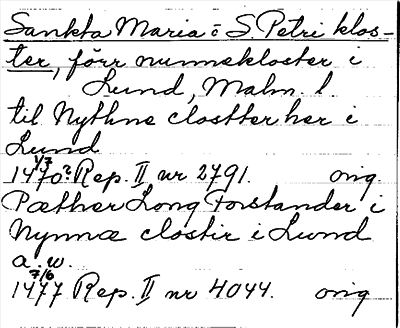 Sankta Maria o S. Petri klos-
ter, förr nunnekloster i
Lund, Malm. l.
til Nythne clostter her i
Lund
1/7
1470? Rep. II nr 2791. orig.
Pæther Long Forstander i
Nynnæ clostir i Lund
a. w.
7/6
1477 Rep. II nr 4044. orig